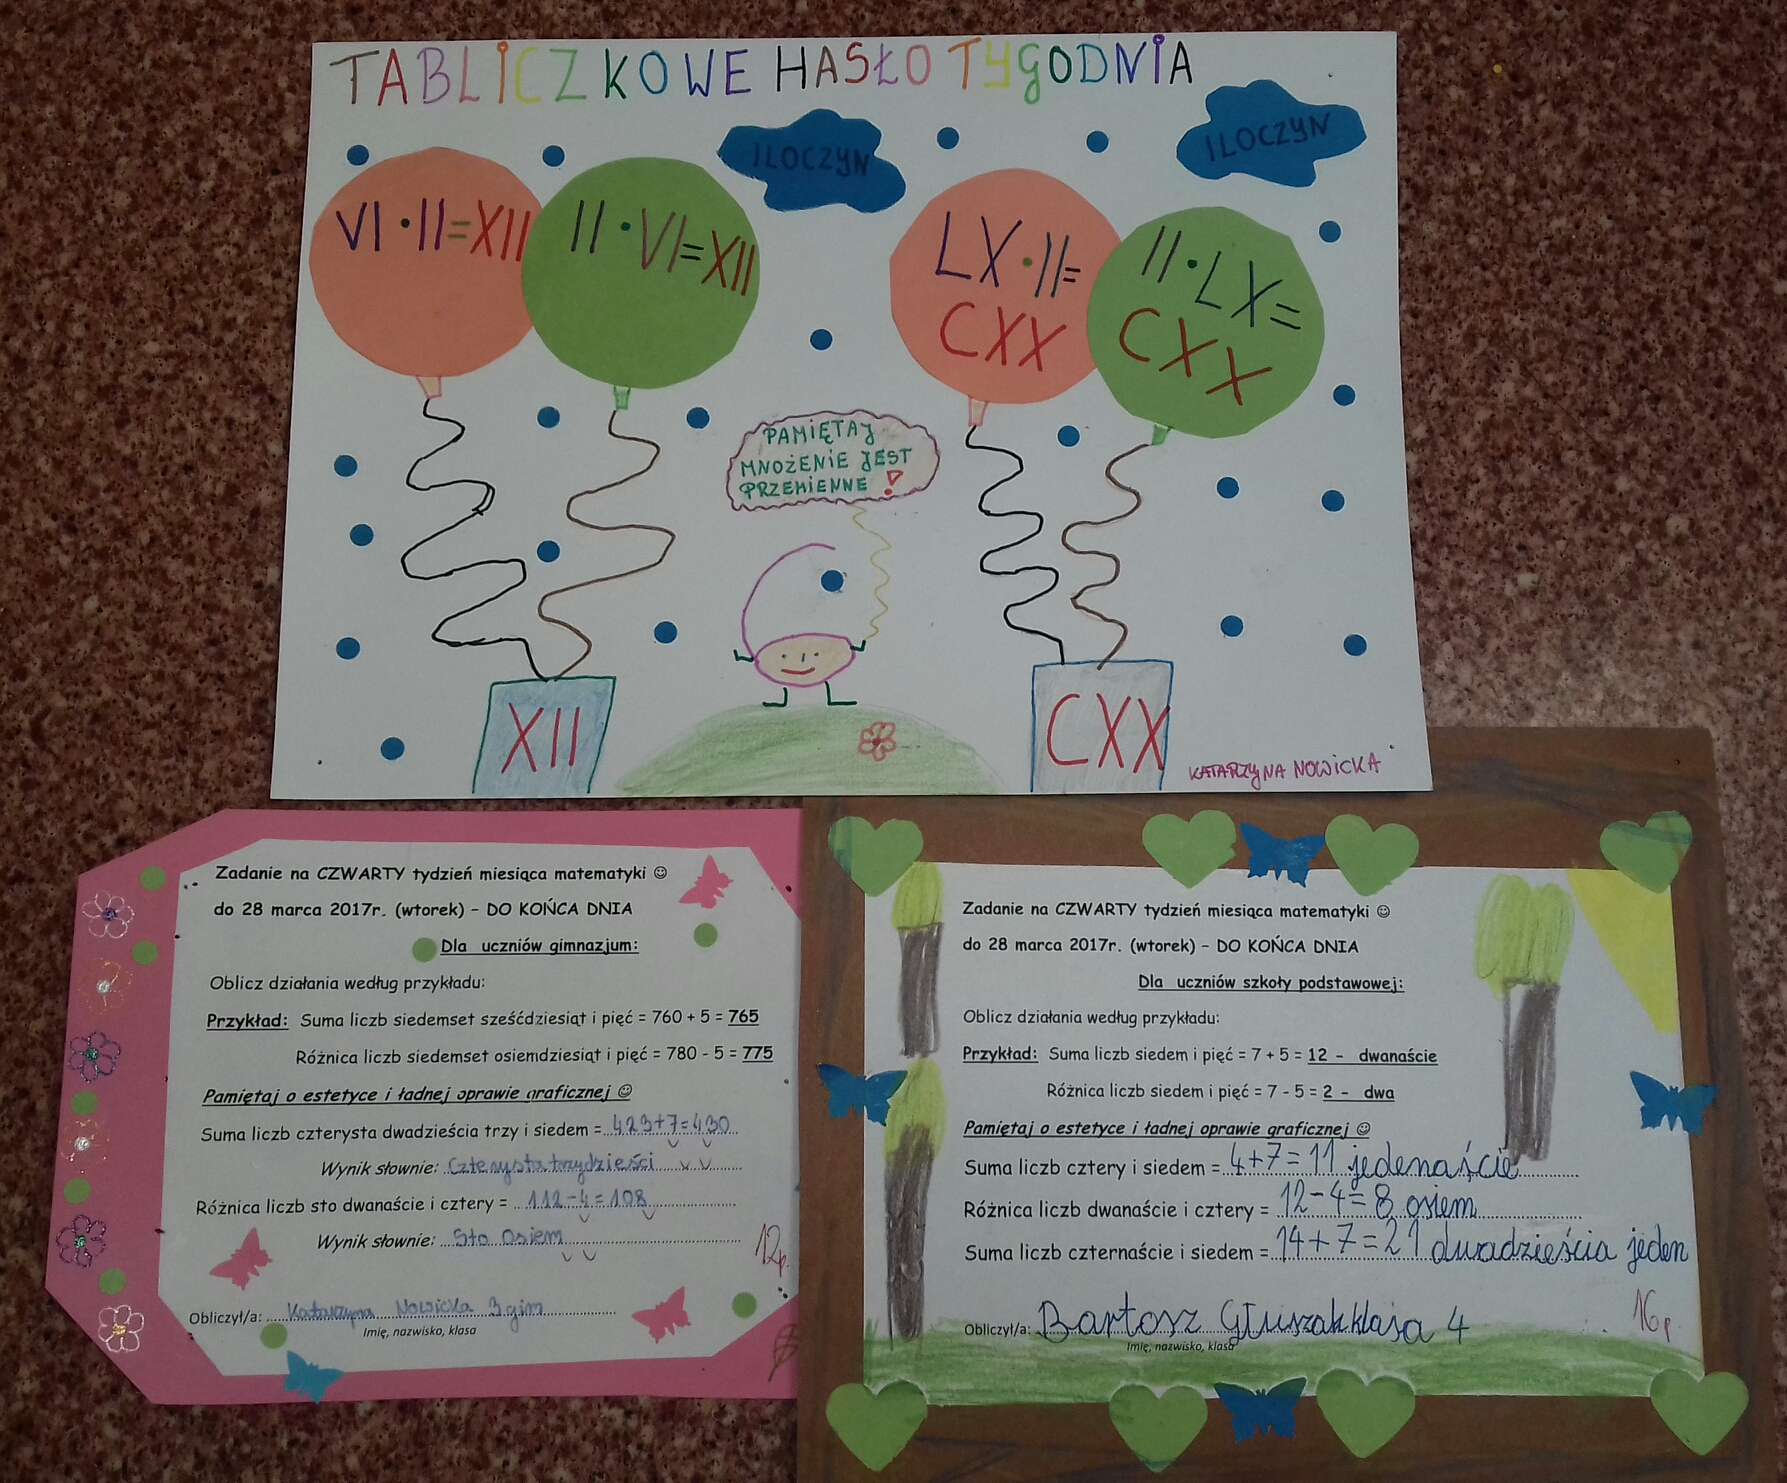 TABLICZKOWE HASŁO TYGODNIA
ILOCZYN
ILOCZYN
VI · II = XII
II · VI = XII
LX · II =
CXX
II · LX =
CXX
PAMIĘTAJ
MNOŻENIE JEST
PRZEMIENNE !
XII
CXX
KATARZYNA NOWICKA
Zadanie na CZWARTY tydzień miesiąca matematyki ☺
do 28 marca 2017r. (wtorek) – DO KOŃCA DNIA
Dla uczniów gimnazjum:
Oblicz działania według przykładu:
Przykład: Suma liczb siedemset sześćdziesiąt i pięć = 760 + 5 = 765
Różnica liczb siedemset osiemdziesiąt i pięć = 780 - 5 = 775
Pamiętaj o estetyce i ładnej oprawie graficznej ☺
Suma liczb czterysta dwadzieścia trzy i siedem = 423+7=430
Wynik słownie: Czterysta trzydzieści
Różnica liczb sto dwanaście i cztery = 112-4=108
Wynik słownie: Sto osiem
12p.
Obliczył/a: Katarzyna Nowicka 3gim
Imię, nazwisko, klasa
Zadanie na CZWARTY tydzień miesiąca matematyki ☺
do 28 marca 2017r. (wtorek) – DO KOŃCA DNIA
Dla uczniów szkoły podstawowej:
Oblicz działania według przykładu:
Przykład: Suma liczb siedem i pięć = 7 + 5 = 12 - dwanaście
Różnica liczb siedem i pięć = 7 - 5 = 2 - dwa
Pamiętaj o estetyce i ładnej oprawie graficznej ☺
Suma liczb cztery i siedem = 4+7=11 jedenaście
Różnica liczb dwanaście i cztery = 12-4=8 osiem
Suma liczb czternaście i siedem = 14+7=21 dwadzieścia jeden
16p.
Obliczył/a: Bartosz Głuszak klasa 4
Imię, nazwisko, klasa